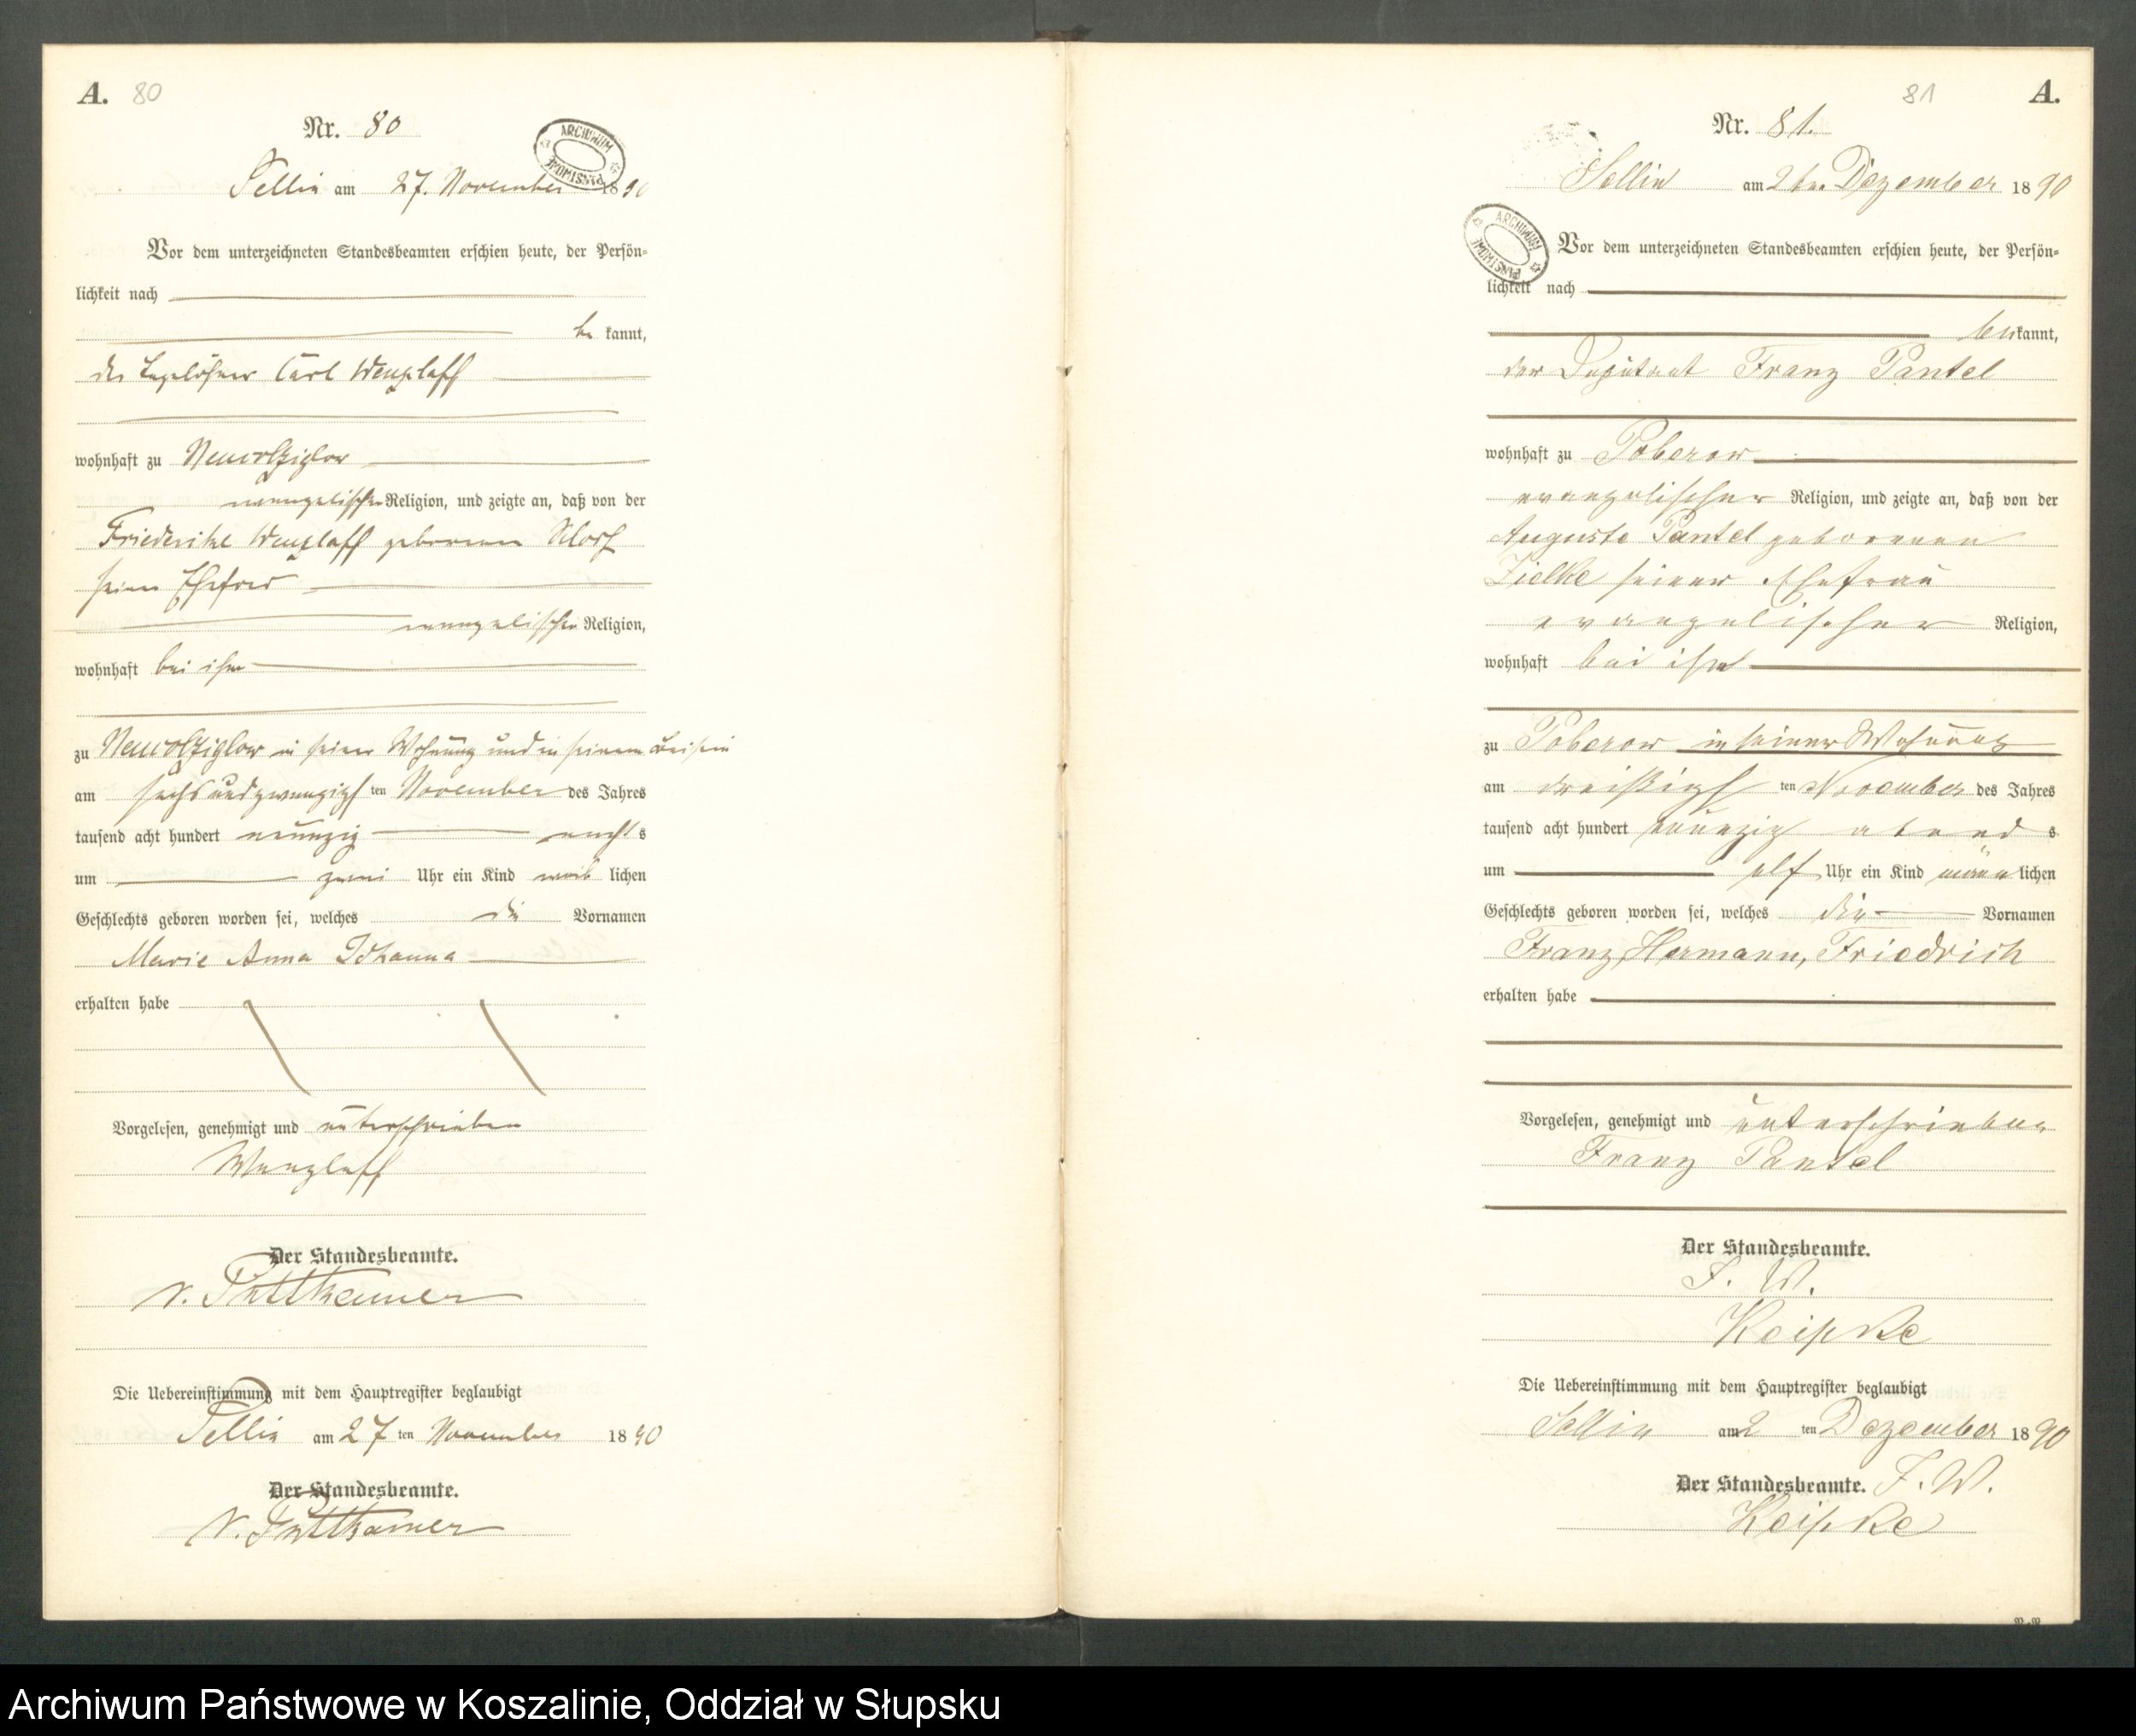 A. 80
Nr. 80
ARCHIWUM PAŃSTWOWE
Sellin am 27. November 1890
Vor dem unterzeichneten Standesbeamten erschien heute, der Persön-
lichkeit nach
be kannt,
der Tagelöhner Carl Wenzlaff
wohnhaft zu Neuwolziglow
evangelischer Religion, und zeigte an, daß von der
Friederike Wenzlaff geborenen
seiner Ehefrau
evangelischer Religion,
wohnhaft bei ihm
zu Neuwolziglow in seiner Wohnung und in seinem Beisein
am sechsundzwanzigsten November des Jahres
tausend acht hundert neunzig nachts
um zwei Uhr ein Kind weiblichen
Geschlechts geboren worden sei, welches die Vornamen
Marie Anna Johanna
erhalten habe
Vorgelesen, genehmigt und unterschrieben
Wenzlaff
Der Standesbeamte.
v. Puttkamer
Die Uebereinstimmung mit dem Hauptregister beglaubigt
Sellin am 27 ten November 1890
Der Standesbeamte.
v. Puttkamer
81 A.
Nr. 81.
Sellin am 2ten Dezember 1890
ARCHIWUM PAŃSTWOWE
Vor dem unterzeichneten Standesbeamten erschien heute, der Persön-
lichkeit nach
bekannt,
der Deputant Franz Pantel
wohnhaft zu Poberow
evangelischer Religion, und zeigte an, daß von der
Auguste Pantel geborenen
Zielke seiner Ehefrau
evangelischer Religion,
wohnhaft bei ihm
zu Poberow in seiner Wohnung
am dreißigsten November des Jahres
tausend acht hundert neunzig abends
um elf Uhr ein Kind männlichen
Geschlechts geboren worden sei, welches die Vornamen
Franz, Hermann, Friedrich
erhalten habe
Vorgelesen, genehmigt und unterschrieben
Franz Pantel
Der Standesbeamte.
Die Uebereinstimmung mit dem Hauptregister beglaubigt
Sellin am 2 ten Dezember 1890
Der Standesbeamte.
Archiwum Państwowe w Koszalinie, Oddział w Słupsku